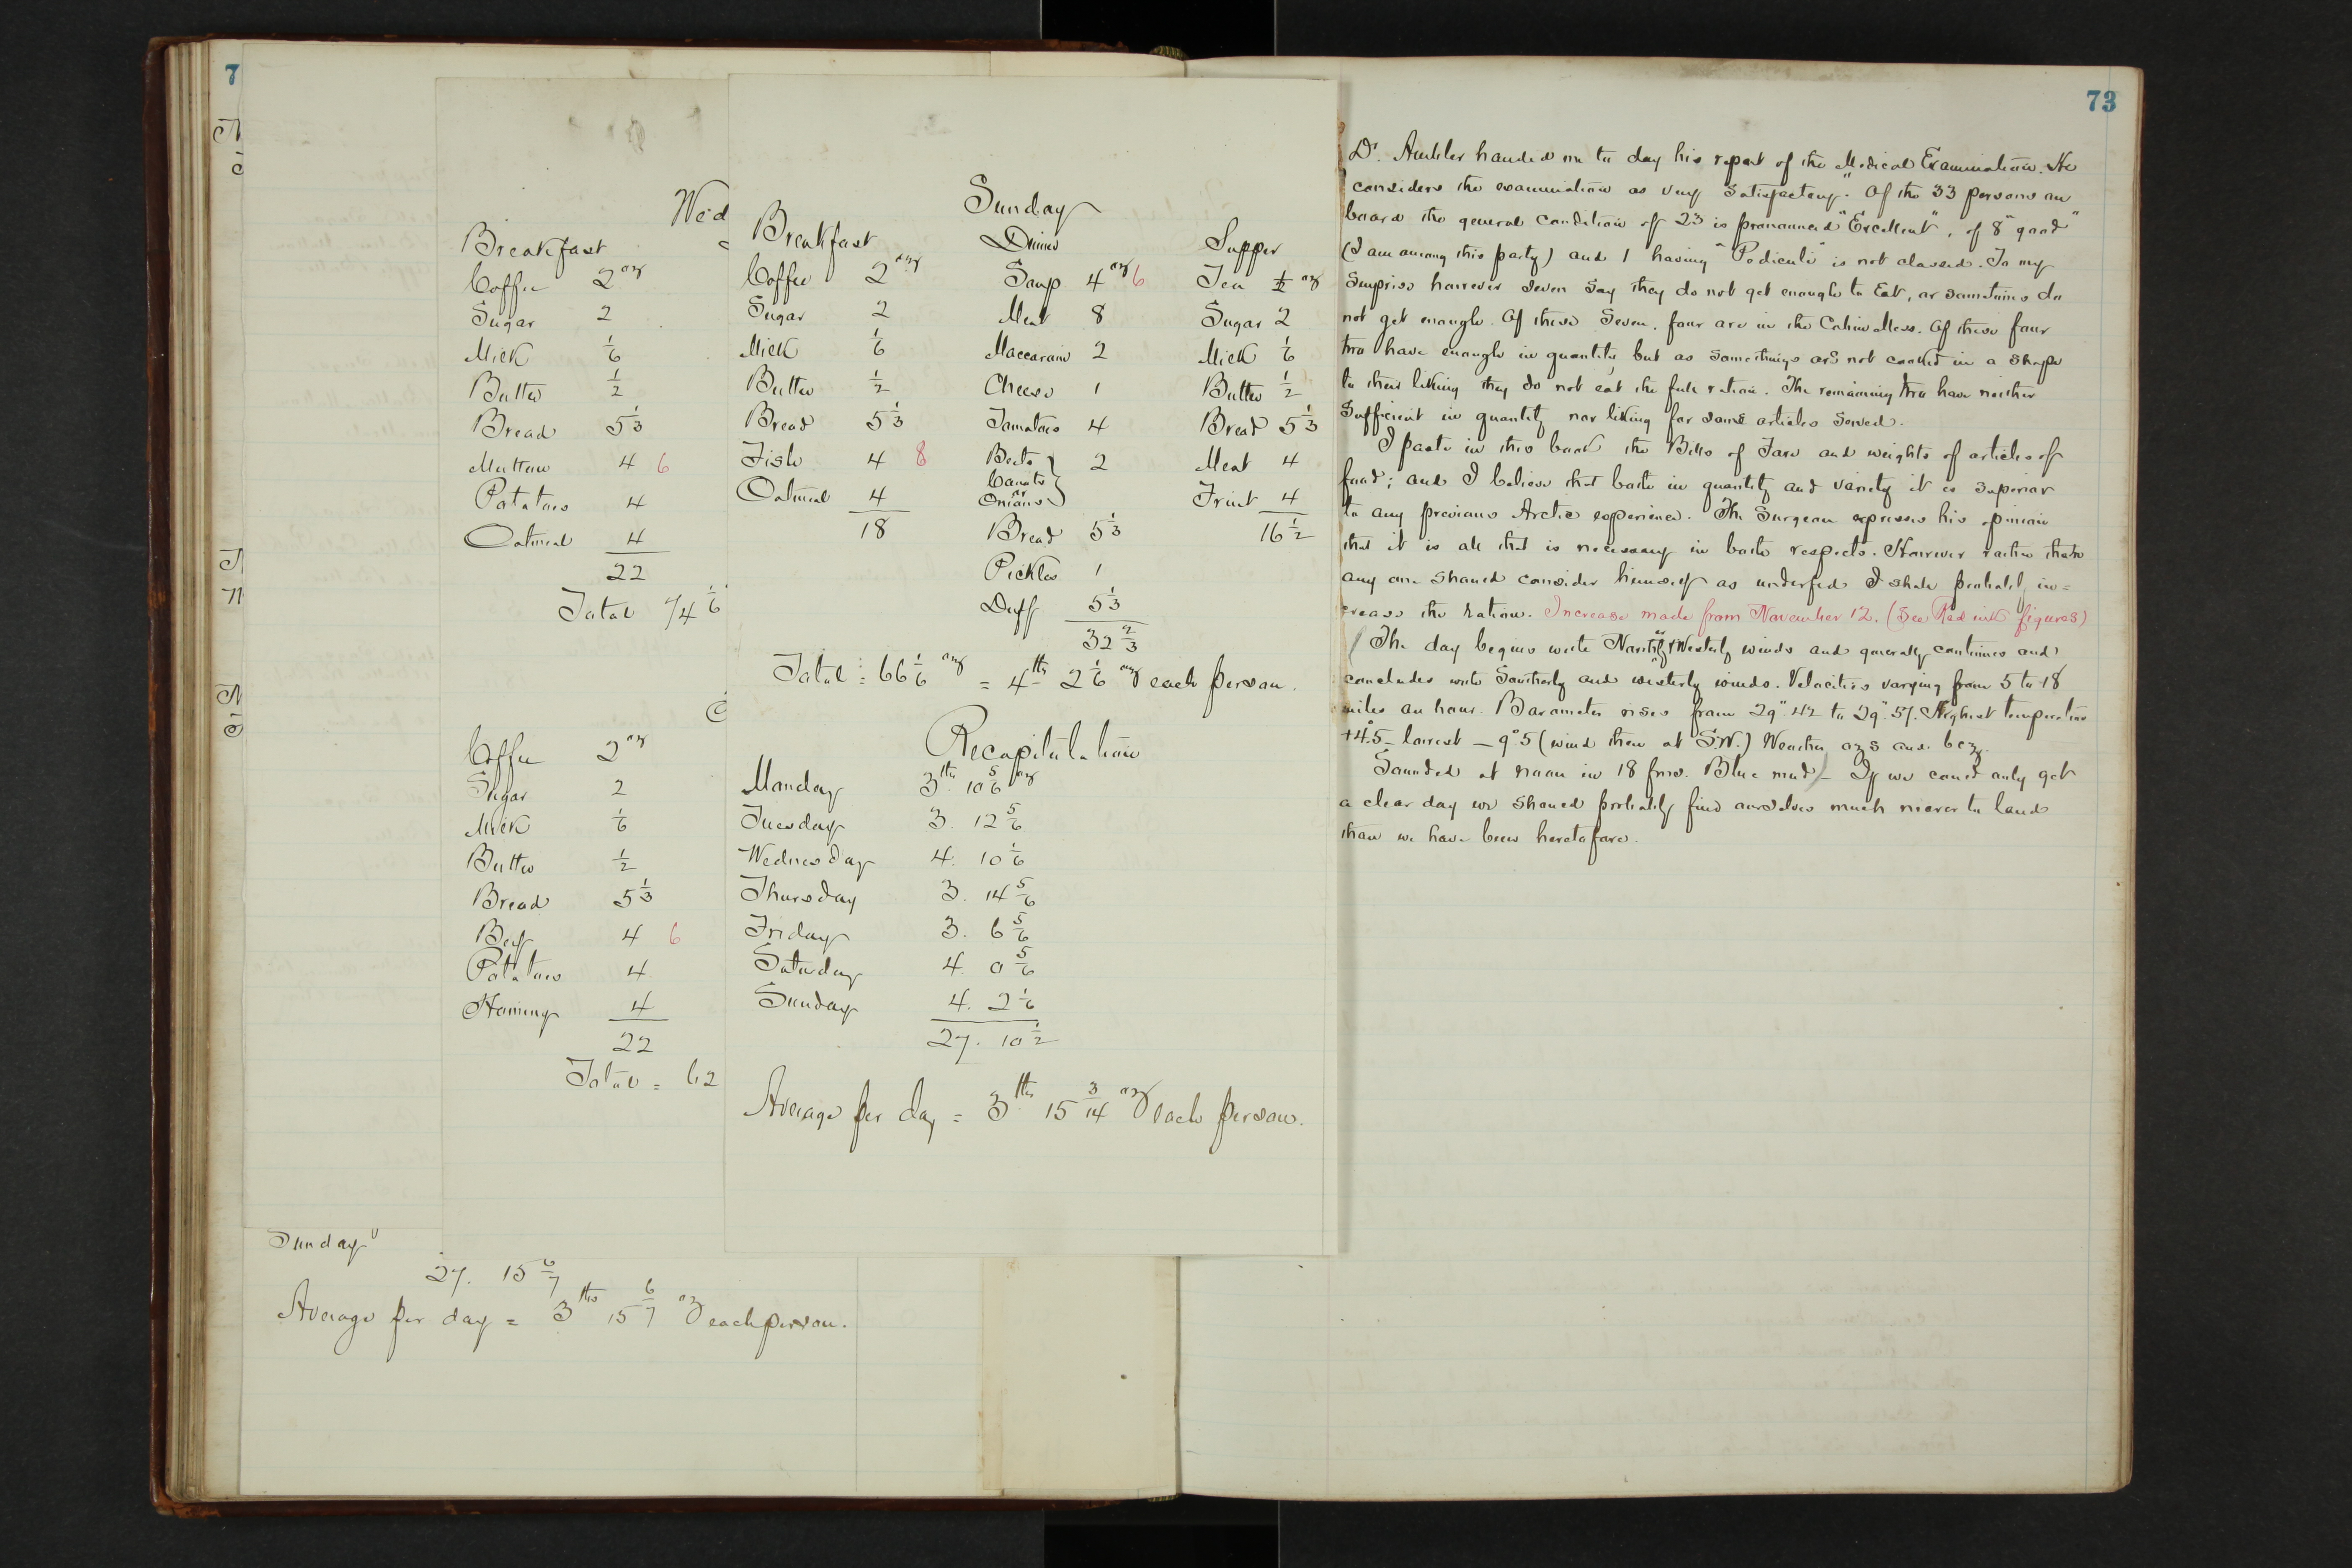 7
Wed
Breakfast
Coffee 2 oz
Sugar 2
Milk 1/6
Butter 1/2
Bread 5 1/3
Mutton 4 6
Potatoes 4
Oatmeal 4
22
Total 74 1/6
Coffee 2 oz
Sugar 2
Milk 1/6
Butter 1/2
Bread 5 1/3
Beef 4 6
Potatoes 4
Hominy 4
22
Total = 62
Sunday
27. 15 6/7
Average per day = 3 lbs 15 6/7 oz each person.
Sunday
Breakfast Dinner Supper
Coffee 2 oz Soup 4 oz 6 Tea 1/2 oz
Sugar 2 Meat 8 Sugar 2
Milk 1/6 Maccaroni 2 Milk 1/6
Butter 1/2 Cheese 1 Butter 1/2
Bread 5 1/3 Tomatoes 4 Bread 5 1/3
Fish 4 8 Beets } 2 Meat 4
Oatmeal 4 Carrots or Onions Fruit 4
18 Bread 5 1/3 16 1/2
Pickles 1
Duff 5 1/3
32 2/3
Total = 66 1/6 oz = 4 lbs 2 1/6 oz each person.
Recapitulation
Monday 3 lbs 10 5/6 oz
Tuesday 3. 12 5/6
Wednesday 4. 10 1/6
Thursday 3. 14 5/6
Friday 3. 6 5/6
Saturday 4. 0 5/6
Sunday 4. 2 1/6
27. 10 1/2
Average per day = 3 lbs 15 3/14 oz each person.
73
Dr. Ambler handed me to day his report of the Medical Examination. He
considers the examination as very "satisfactory." Of the 33 persons on
board the general condition of 23 is pronounced "Excellent", of 8 "good"
(I am among this party) and 1 having "Pediculi" is not classed. To my
surprise however seven say they do not get enough to Eat, or sometimes do
not get enough. Of these seven, four are in the Cabin Mess. Of these four
two have enough in quantity, but as somethings are not cooked in a shape
to their liking they do not eat the full ration. The remaining two have neither
sufficient in quantity nor liking for some articles served.
I paste in this book the Bills of Fare and weights of articles of
food; and I believe that both in quantity and variety it is superior
to any previous Arctic experience. The Surgeon expresses his opinion
that it is all that is necessary in both respects. However rather than
any one should consider himself as underfed I shall probably in=
crease the ration. Increase made from November 12. (See Red ink figures)
(The day begins with North'ly & Westerly winds and generally continues and
concludes with Southerly and westerly winds. Velocities varying from 5 to 18
miles an hour. Barometer rises from 29".42 to 29".57. Highest temperature
+4.5 - lowest - 9°.5 (wind then at S.W.) Weather ozs and bcz.
Sounded at noon in 18 fms. Blue mud) - If we could only get
a clear day we should probably find ourselves much nearer to land
than we have been heretofore.